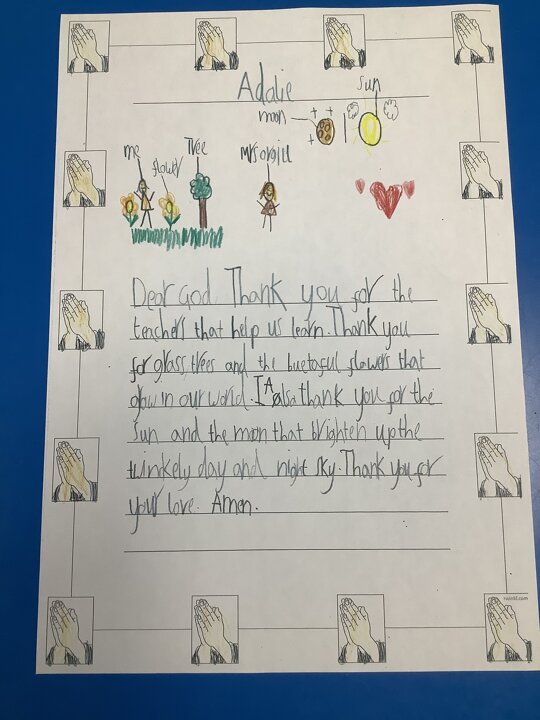 Adalie
sun
moon
me
flower
Tree
mrs orgill
Dear God Thank you for the
teachers that help us learn. Thank you
for grass, trees and the buetaful flowers that
grow in our world. I also thank you for the
sun and the moon that brighten up the
twinkely day and night sky. Thank you for
your love. Amen.
twinkl.com